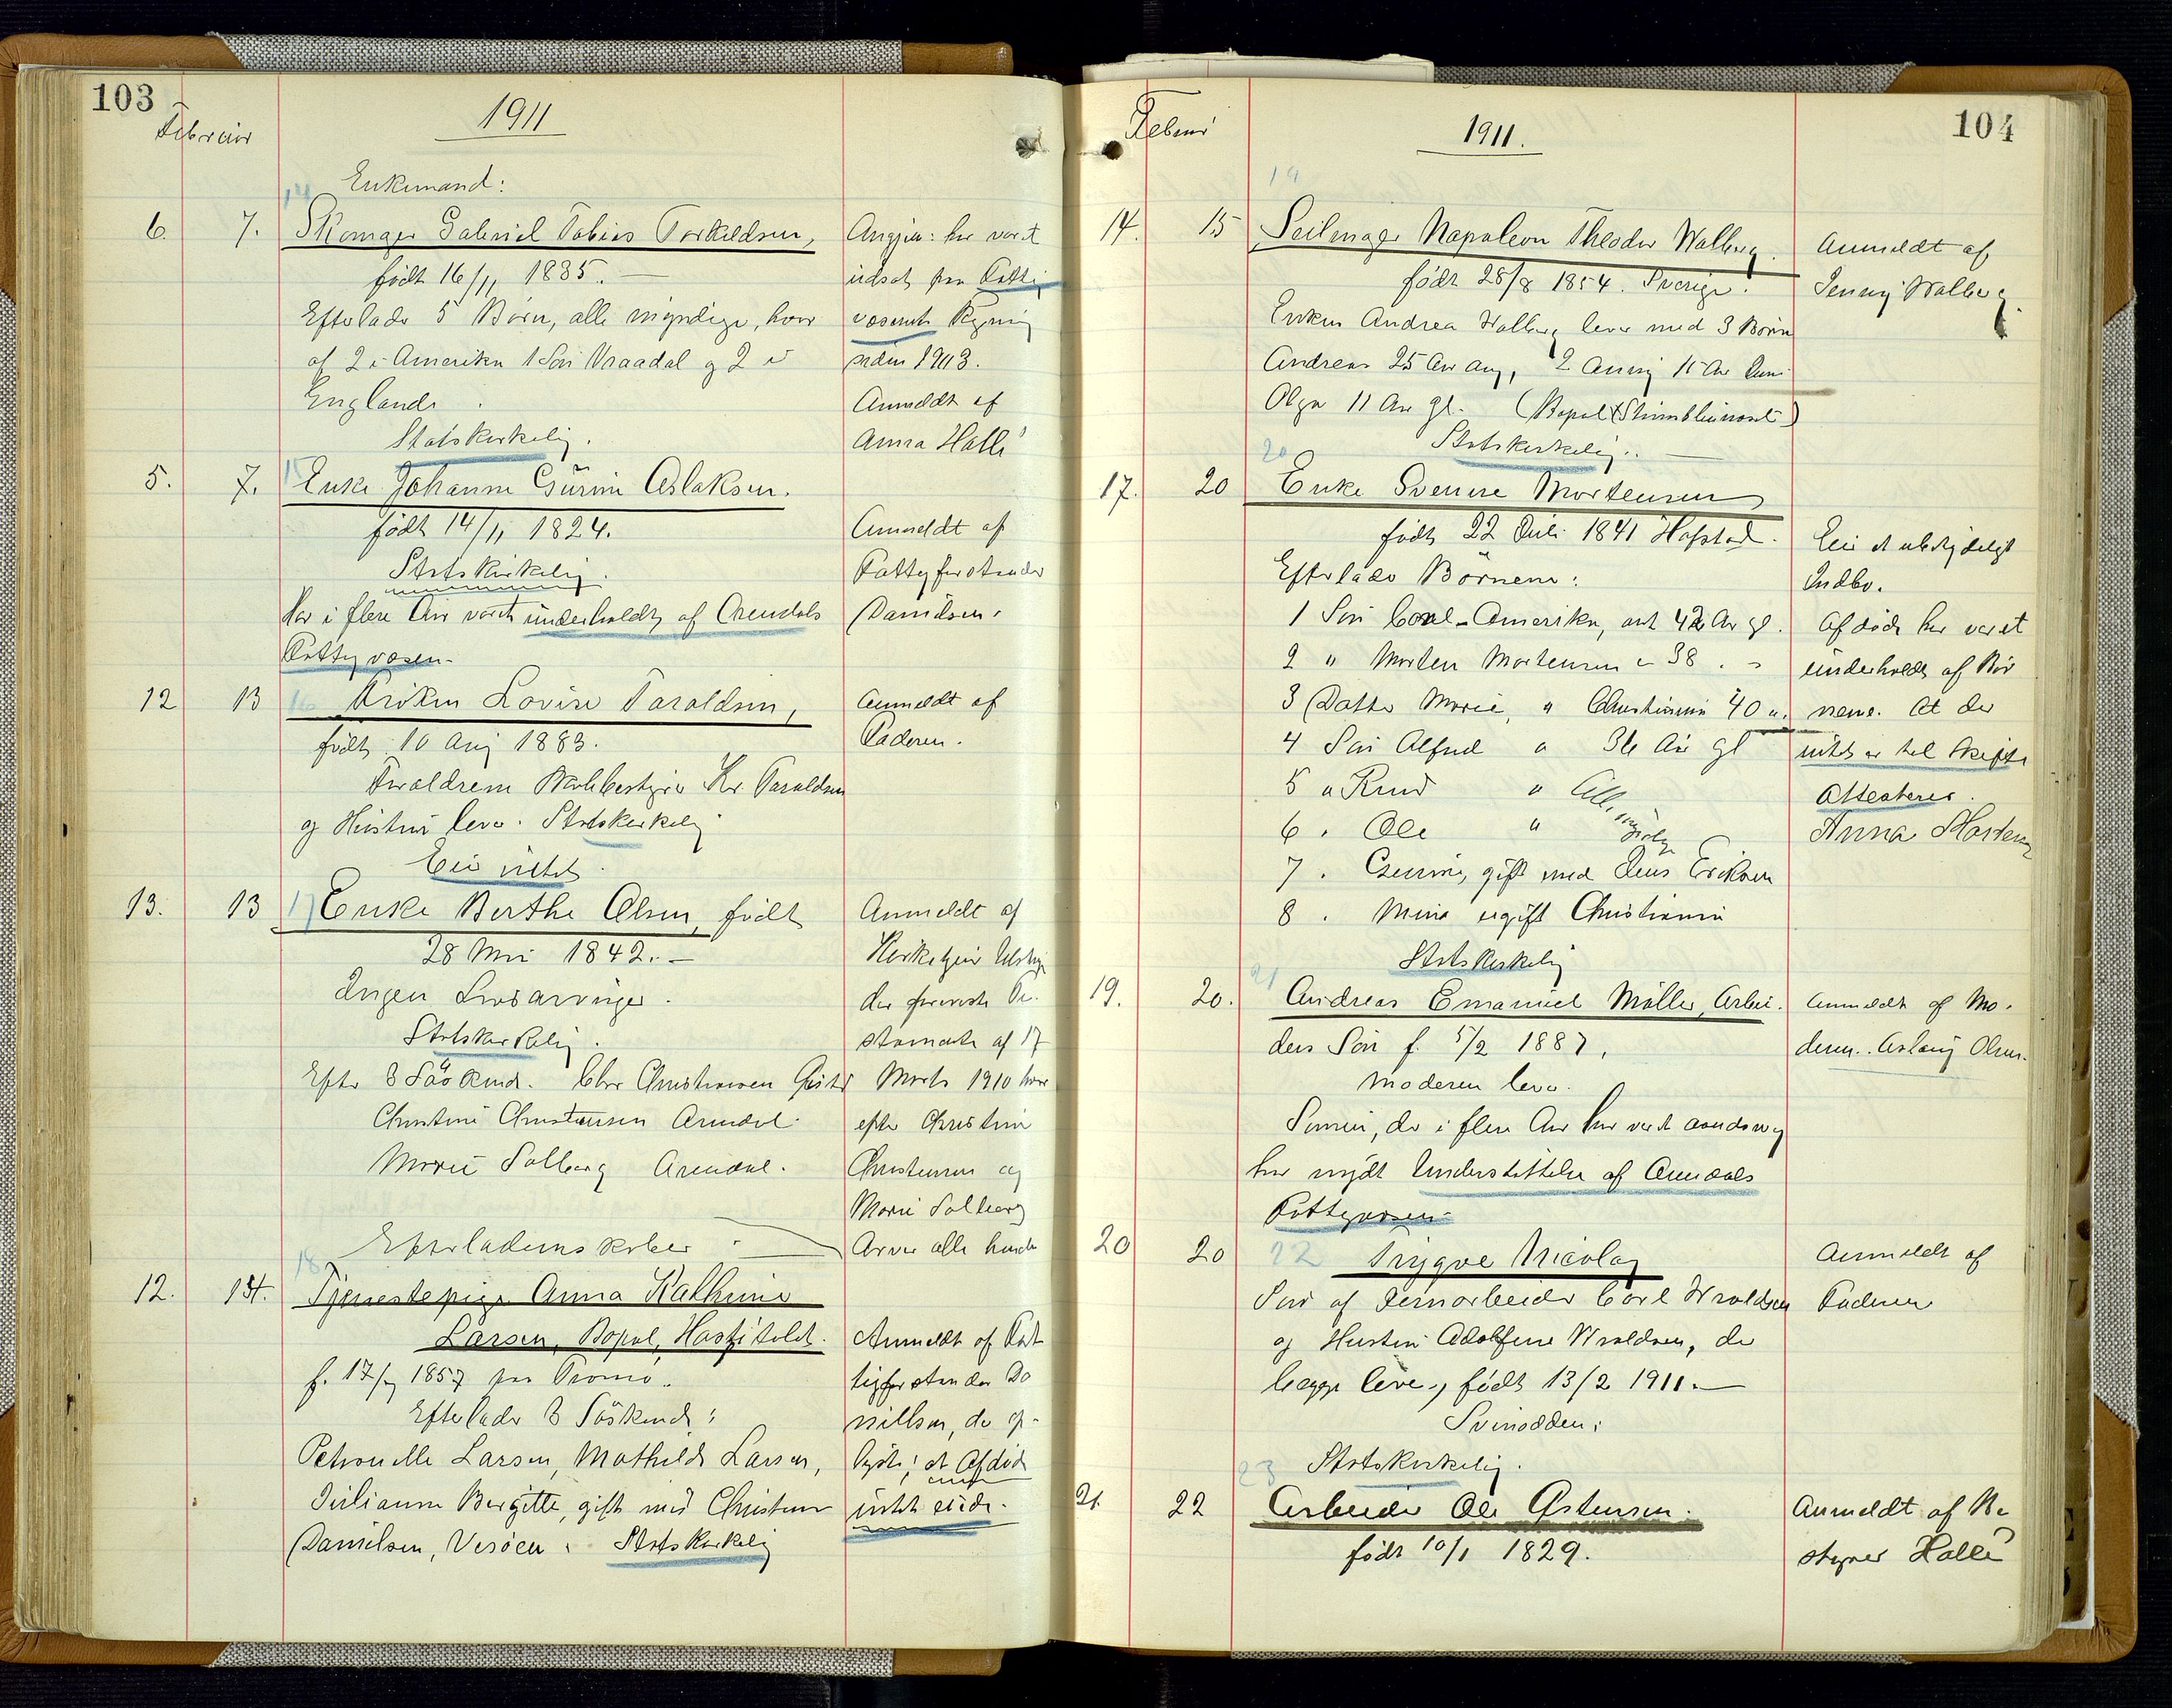 103
Februar
1911
Enkemand:
14
6. 7. Skomager Gabriel Tobias Torkildsen,
født 16/11 1835.
Efterlader 5 Børn, alle myndige, hvor
af 2 i Amerika 1 Søn Vraadal og 2 i
England.
Statskirkelig.
Angjen: har været
udsat paa Fattig
væsenets Regning
siden 1903.
Anmeldt af
Anna Halle
15
5. 7. Enke Johanne Gurine Aslaksen.
født 14/11 1824.
Statskirkelig.
Har i flere Aar været underholdt af Arendals
Fattigvæsen.
Anmeldt af
Fattigforstander
Danielsen.
16
12 13 Frøken Lovise Taraldsen,
født 10 Aug 1883.
Forældrene Kr. Taraldsen
og Hustru lever. Statskirkelig
Eier intet.
Anmeldt af
Faderen.
17
13. 13 Enke Berthe Olsen, født
28 Mai 1842. –
Ingen Livsarvinger.
Statskirkelig.
Efter 3 Søskende. Chr Christensen
Christine Christensen Arendal.
Marie Solberg Arendal.
Efterladenskaber
Anmeldt af
der foreviste Te-
stamente af 17
Marts 1910 hvor
efter Christine
Christensen og
Marie Solberg
Arver alle hende
18
12. 14. Tjenestepige Anna Kathrine
Larsen, Bopæl, Hospitalet.
f. 17/7 1857 paa Tromø.
Efterlader 3 Søskende:
Petronelle Larsen, Mathilde Larsen,
Juliane Bergitte, gift med Christen
Danielsen, Vesøen. Statskirkelig
Anmeldt af Fat
tigforstander Da
nielsen, der op-
lyste, at Afdøde
intet eiede.
Februar
1911.
104
19
14. 15 Seilmager Napoleon Theodor Walberg.
født 28/8 1854. Sverige.
Enken Andrea Walberg lever med 3 Børn
Andreas 25 Aar
Olga 11 Aar gl. (Bopæl
Statskirkelig.
Anmeldt af
Jenny Walberg.
20
17. 20 Enke Svenine Mortensen
født 22 Juli 1841 Hafstad.
Efterlader Børnene:
1 Søn Carl – Amerika, ant 42 Aar gl.
2 " Morten Mortensen " 38 . "
3 Datter Marie, " Christiania 40 ".
4 Søn Alfred " 36 Aar gl
5 " Knud " Alle
6 . Ole " myndige
7 . Gurine, gift med Jens Eriksen
8 . Mina ugift Christiania
Statskirkelig
Eier et ubetydeligt
Indbo.
Afdøde har været
underholdt af Bør
nene. At der
intet er til Skifte
Attesteres.
Anna Mortensen
21
19. 20. Andreas Emanuel Møller, Arbei-
ders Søn f. 5/2 1887,
Moderen lever.
Sønnen, der i flere Aar har været aandssvag
har nydt Understøttelse af Arendals
Fattigvæsen.
Anmeldt af Mo-
deren. Aslaug Olsen.
22
20 20 Trygve Nicolay
Søn af Jernarbeider Carl Wroldsen
og Hustru Adolfine Wroldsen, der
begge lever, født 13/2 1911. –
Svinodden.
Statskirkelig.
Anmeldt af
Faderen
23
21. 22 Arbeider Ole Østensen.
født 10/1 1829.
Anmeldt af Be
styrer Halle